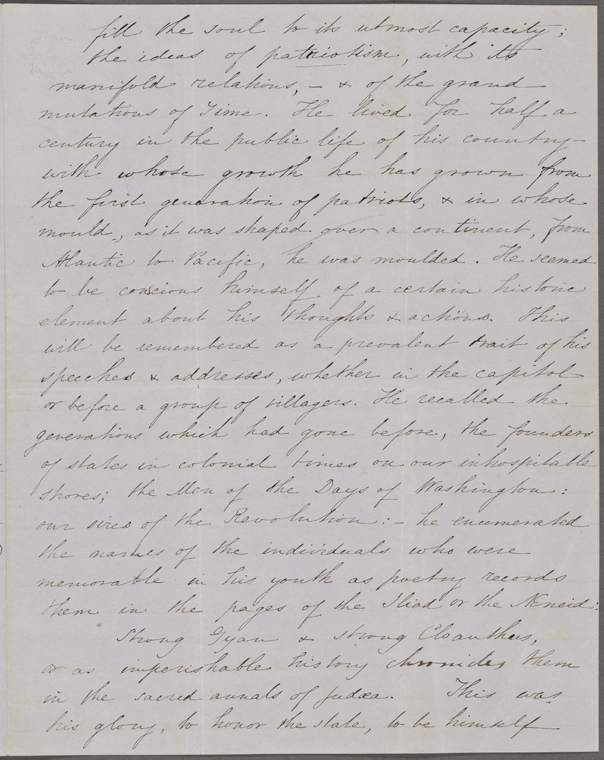 fill the soul to its utmost capacity;
the ideas of patriotism, with its
manifold relations, - & of the grand
mutations of Time. He lived for half a
century in the public life of his country-
with whose growth he has grown from
the first generation of patriots, & in whose
mould, as it was shaped over a continent, from
Atlantic to Pacific, he was moulded. He seemed
to be conscious himself of a certain historic
element about his thoughts & actions. This
will be remembered as a prevalent trait of his
speeches & addresses, whether in the capitol
or before a group of villagers. He recalled the
generations which had gone before, the founders
of states in colonial times on our inhospitable
shores; the Men of the Days of Washington:
our sires of the Revolution: - he enumerated
the names of the individuals who were
memorable in his youth as poetry records
them in the pages of the Iliad or the Æneid:
Strong Gyan & strong Cloanthus,
or as imperishable history chronicles them
in the sacred annals of Judæa. This was
his glory, to honor the state, to be himself